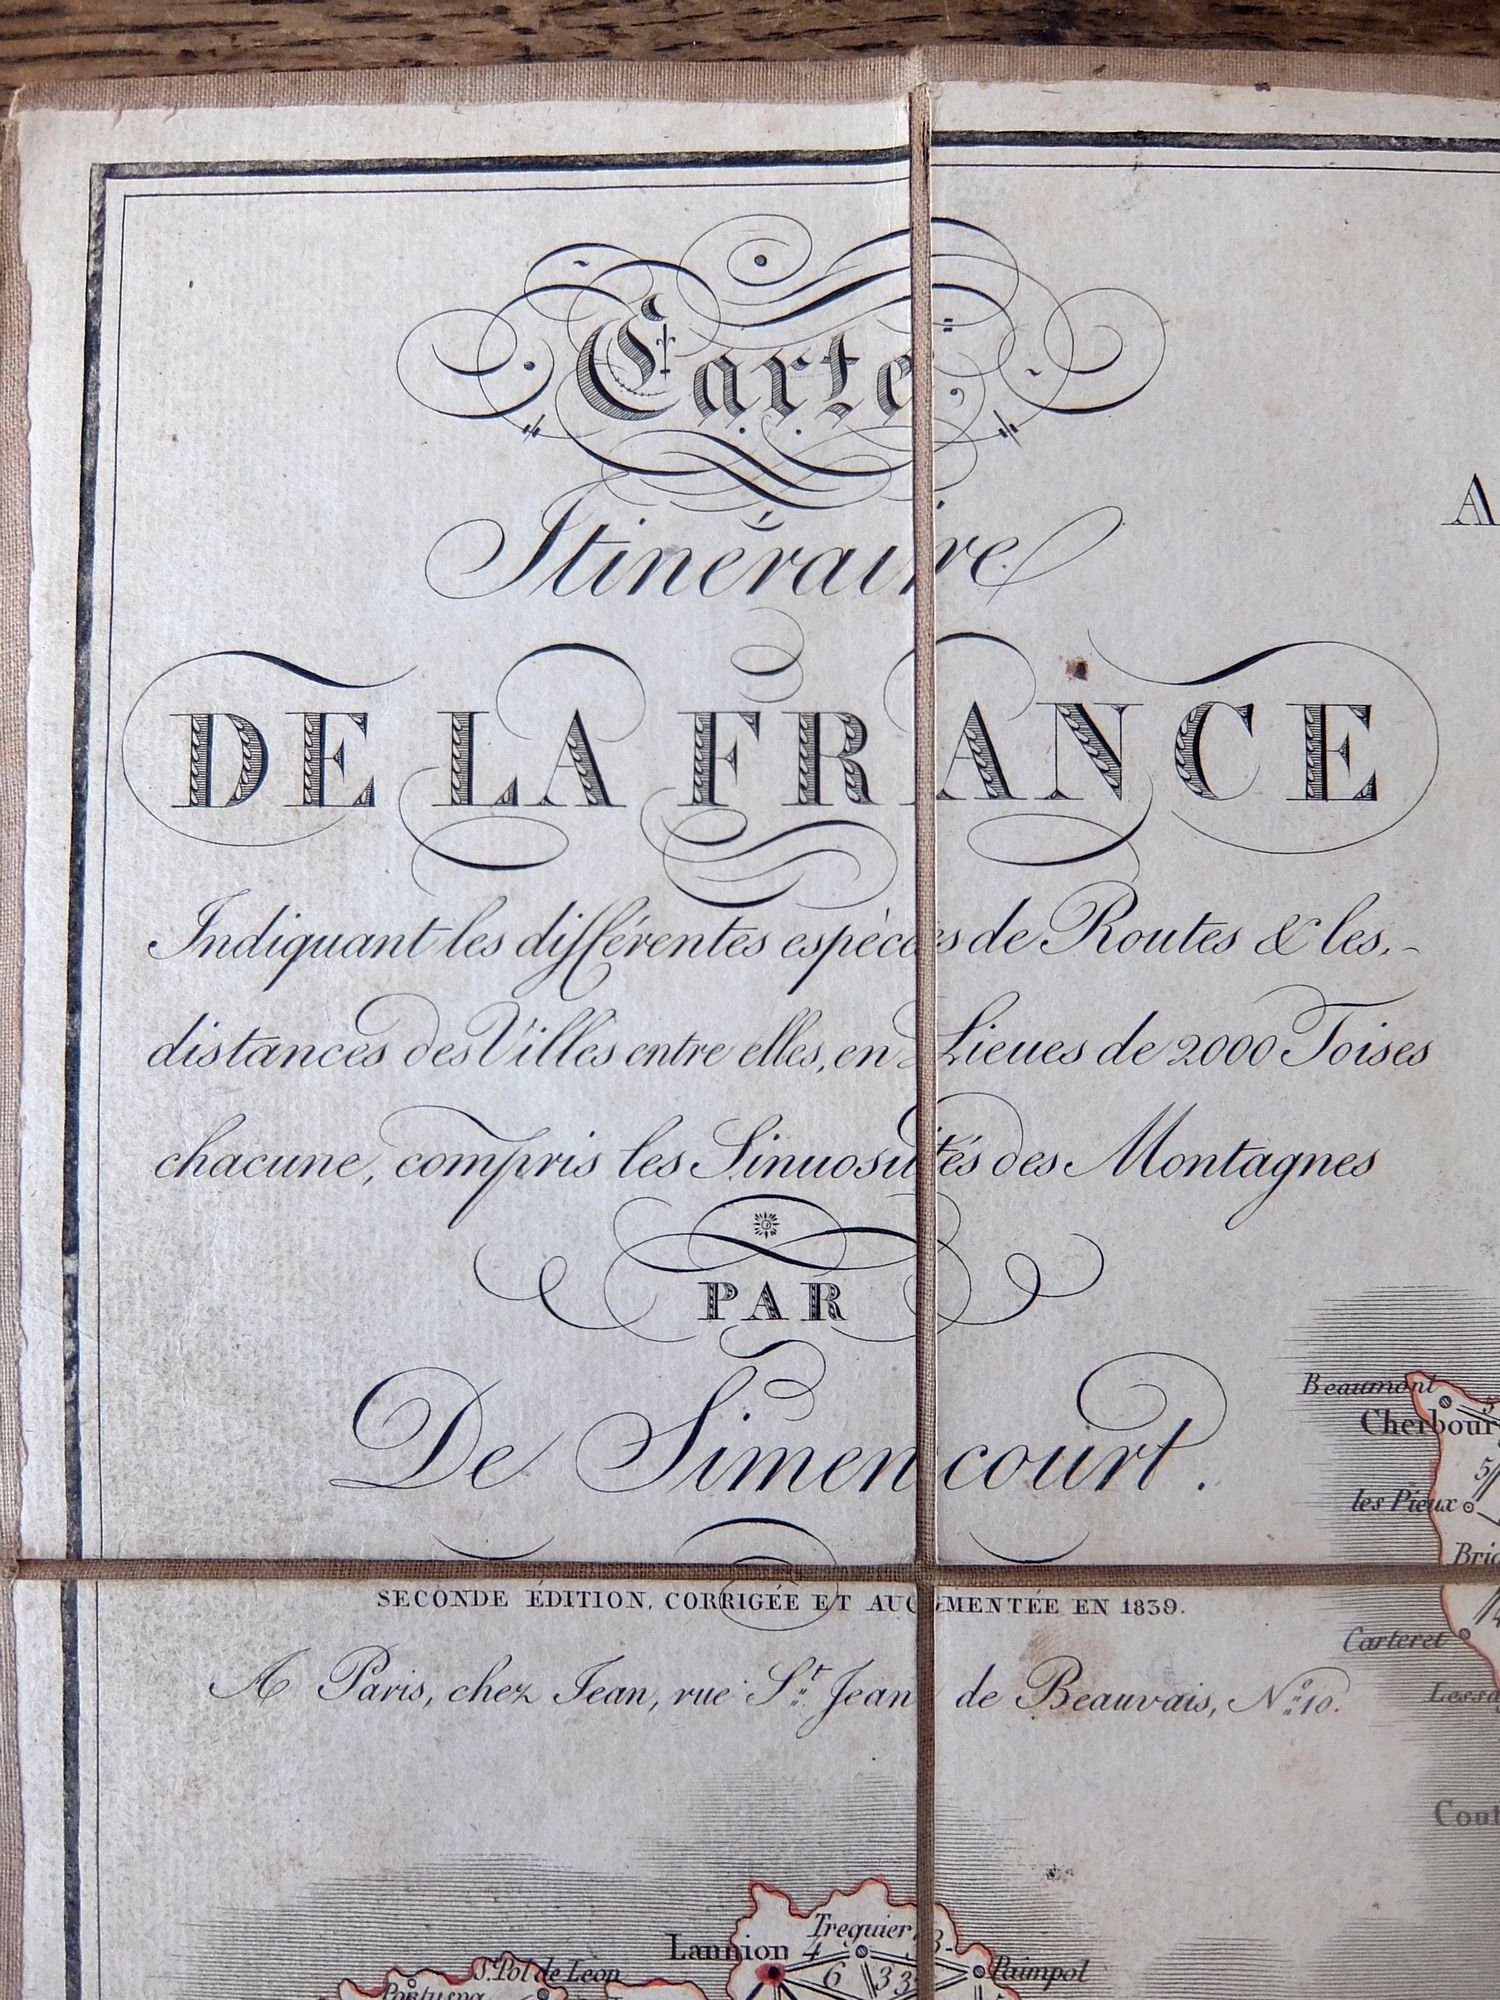 Carte
Itinéraire
DE LA FRANCE
Indiquant les différentes espèces de Routes & les
distances des Villes entre elles, en Lieues de 2000 Toises
chacune, compris les Sinuosités des Montagnes
PAR
De Simencourt.
SECONDE ÉDITION, CORRIGÉE ET AUGMENTÉE EN 1839.
A Paris, chez Jean, rue St. Jean de Beauvais, No. 10.
A
Beaumont
5
Cherbour
5
les Pieux
Bric
Carteret
4
Lessa
Cout
Treguier
Lannion 4
3
6 3 3
Paimpol
S. Pol de Leon